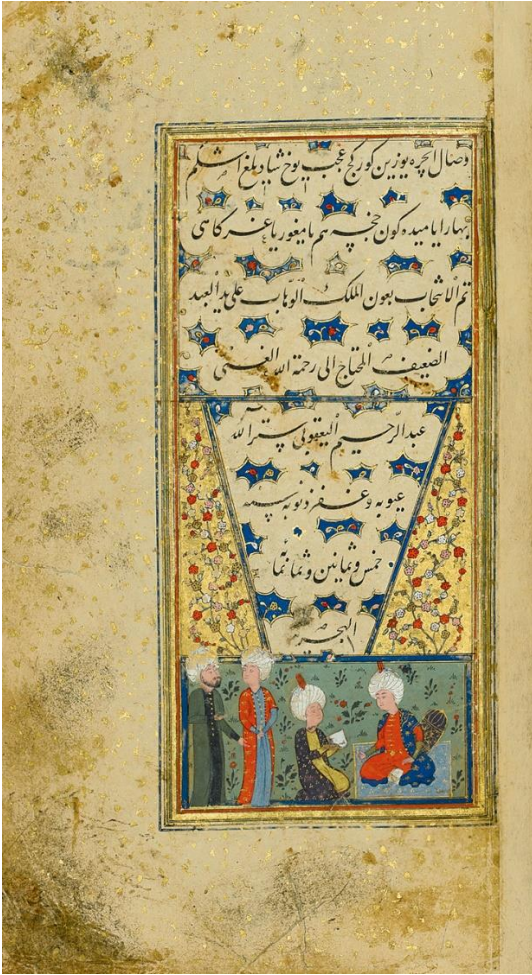 وصال ایچره یوزین کورکج عجب یوخ شاد بلغ
بهار ایامیده کون خنجه هم یا
تم الانتخاب بعون الملک الوهاب علی ید العبد
الضعیف المحتاج الی رحمة الله الغنی
عبد الرحیم الیعقوبی ستر الله
عیوبه وغفر ذنوبه سنه
خمس وثمانین وثمانمائة
الهجریة